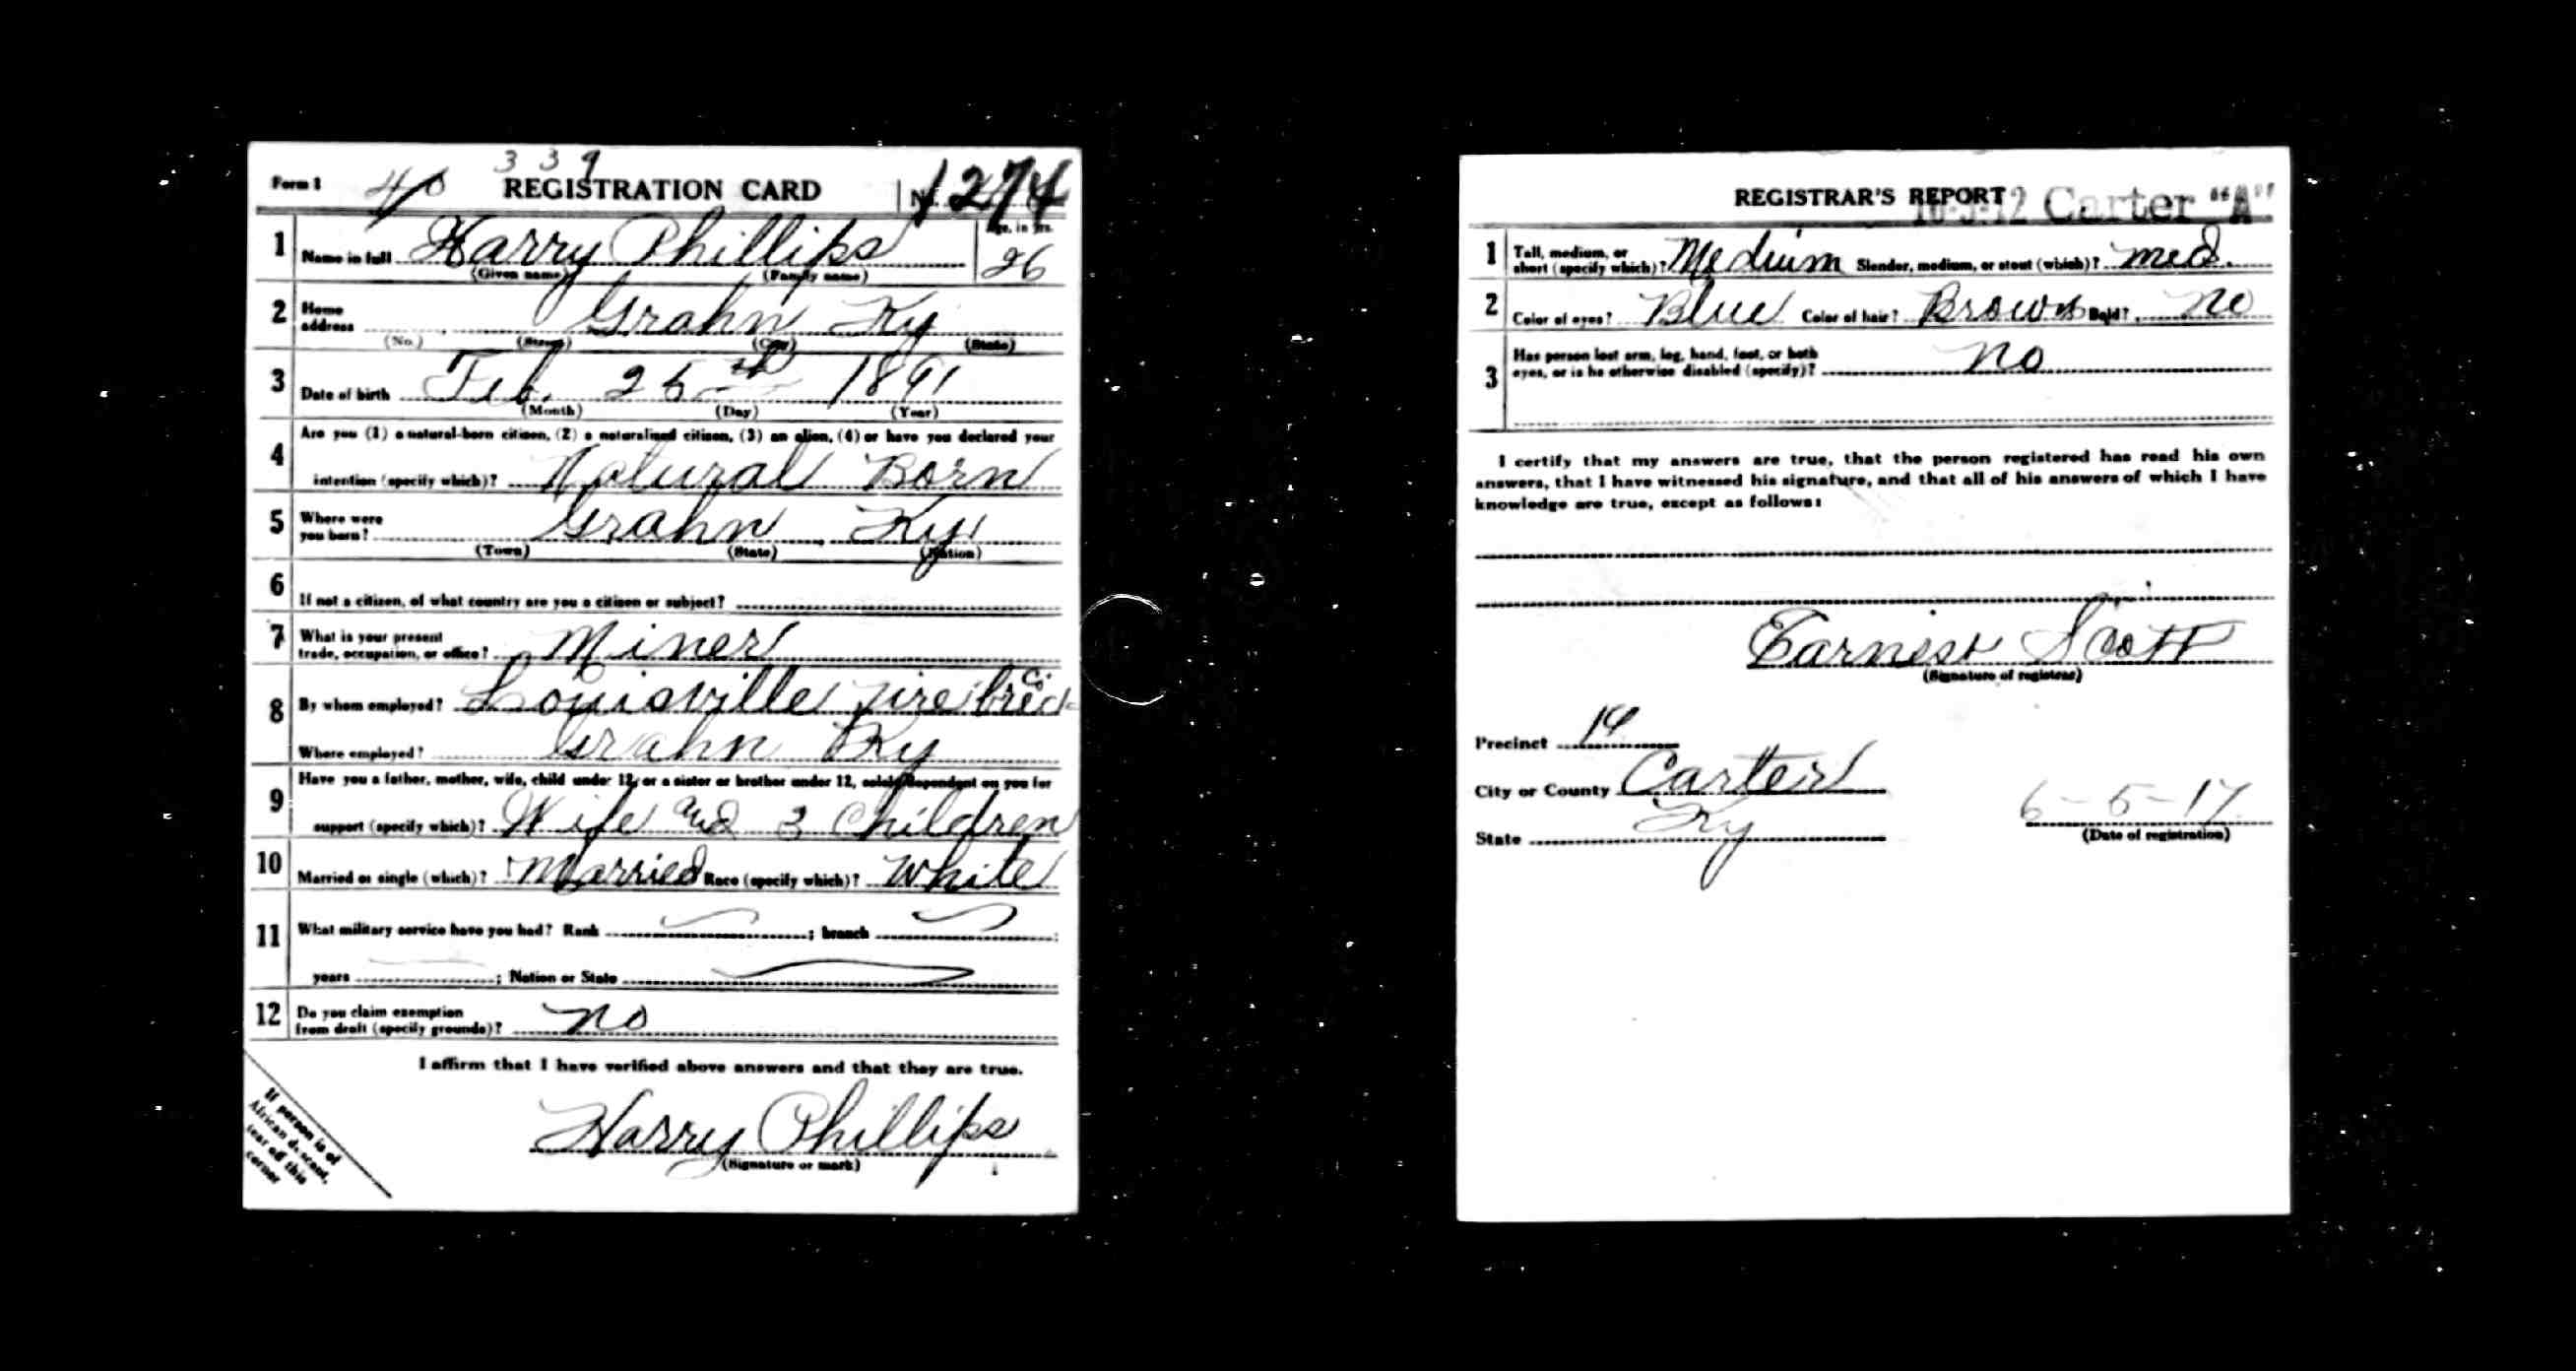 339
Form 1 40 REGISTRATION CARD No. 1274
1 Name in full Harry Phillips Age, in yrs. 26
(Given name) (Family name)
2 Home address Grahn Ky
(No.) (Street) (City) (State)
3 Date of birth Feb. 25th 1891
(Month) (Day) (Year)
4 Are you (1) a natural-born citizen, (2) a naturalized citizen, (3) an alien, (4) or have you declared your
intention (specify which)? Natural Born
5 Where were you born? Grahn Ky
(Town) (State) (Nation)
6 If not a citizen, of what country are you a citizen or subject?
7 What is your present trade, occupation, or office? Miner
8 By whom employed? Louisville Fire brick Co.
Where employed? Grahn Ky
9 Have you a father, mother, wife, child under 12, or a sister or brother under 12, solely dependent on you for
support (specify which)? Wife and 3 Children
10 Married or single (which)? Married Race (specify which)? White
11 What military service have you had? Rank ; branch
years ; Nation or State
12 Do you claim exemption from draft (specify grounds)? no
I affirm that I have verified above answers and that they are true.
Harry Phillips
(Signature or mark)
If person is of
African descent,
tear off this
corner
REGISTRAR'S REPORT Carter "A"
1 Tall, medium, or short (specify which)? Medium Slender, medium, or stout (which)? med.
2 Color of eyes? Blue Color of hair? Brown Bald? No
3 Has person lost arm, leg, hand, foot, or both
eyes, or is he otherwise disabled (specify)? No
I certify that my answers are true, that the person registered has read his own
answers, that I have witnessed his signature, and that all of his answers of which I have
knowledge are true, except as follows:
Earnest Scott
(Signature of registrar)
Precinct 14
City or County Carter
State Ky
6-5-17
(Date of registration)